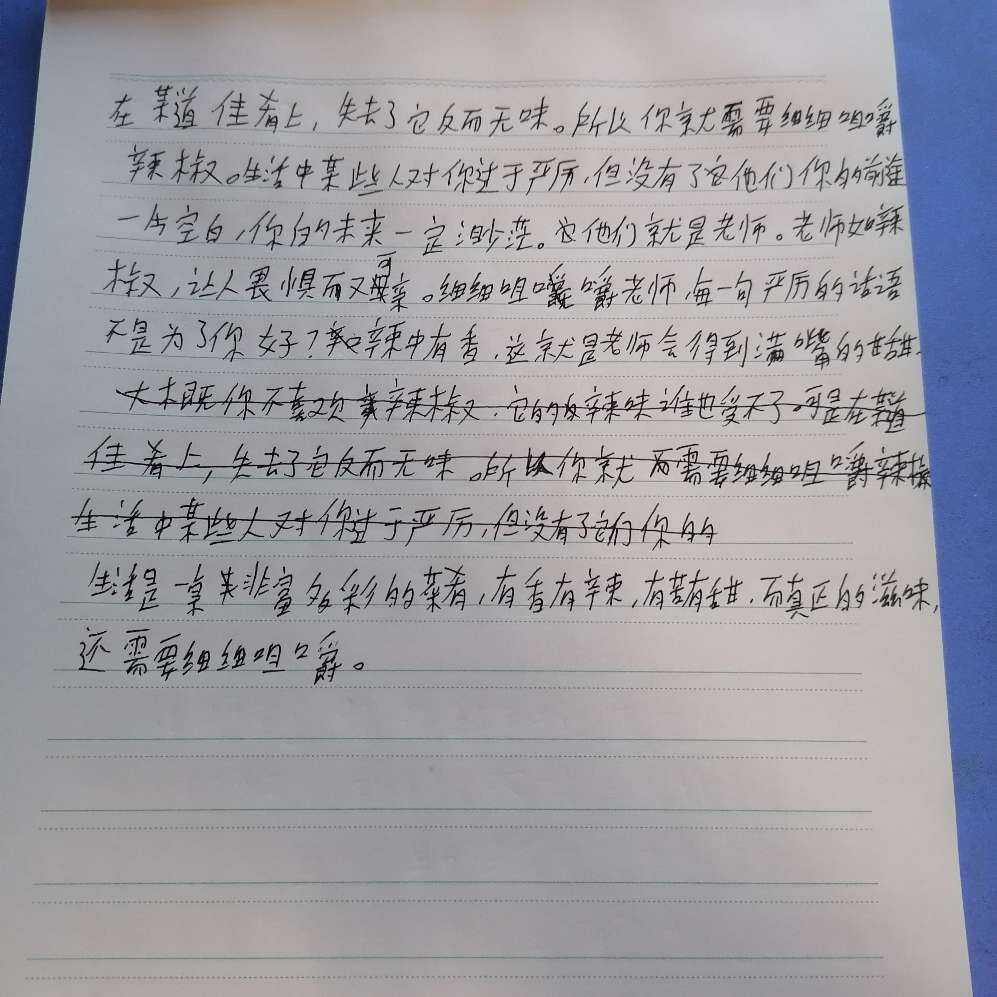 在某道佳肴上，失去了它反而无味。所以你就需要细细咀嚼
辣椒。生活中某些人对你过于严厉，但没有了他们你的前途
一片空白，你的未来一定渺茫。他们就是老师。老师如辣
椒，让人畏惧而又可亲。细细咀嚼老师，每一句严厉的话语
不是为了你好？辣中有香，这就是老师会得到满嘴的甜
大概你不喜欢辣椒，它的辛辣味谁也受不了。可是在某道
佳肴上，失去了它反而无味。所以你就需要细细咀嚼辣椒
生活中某些人对你过于严厉，但没有了他们你的
生活是一桌丰富多彩的菜肴，有香有辣，有苦有甜，而真正的滋味，
还需要细细咀嚼。